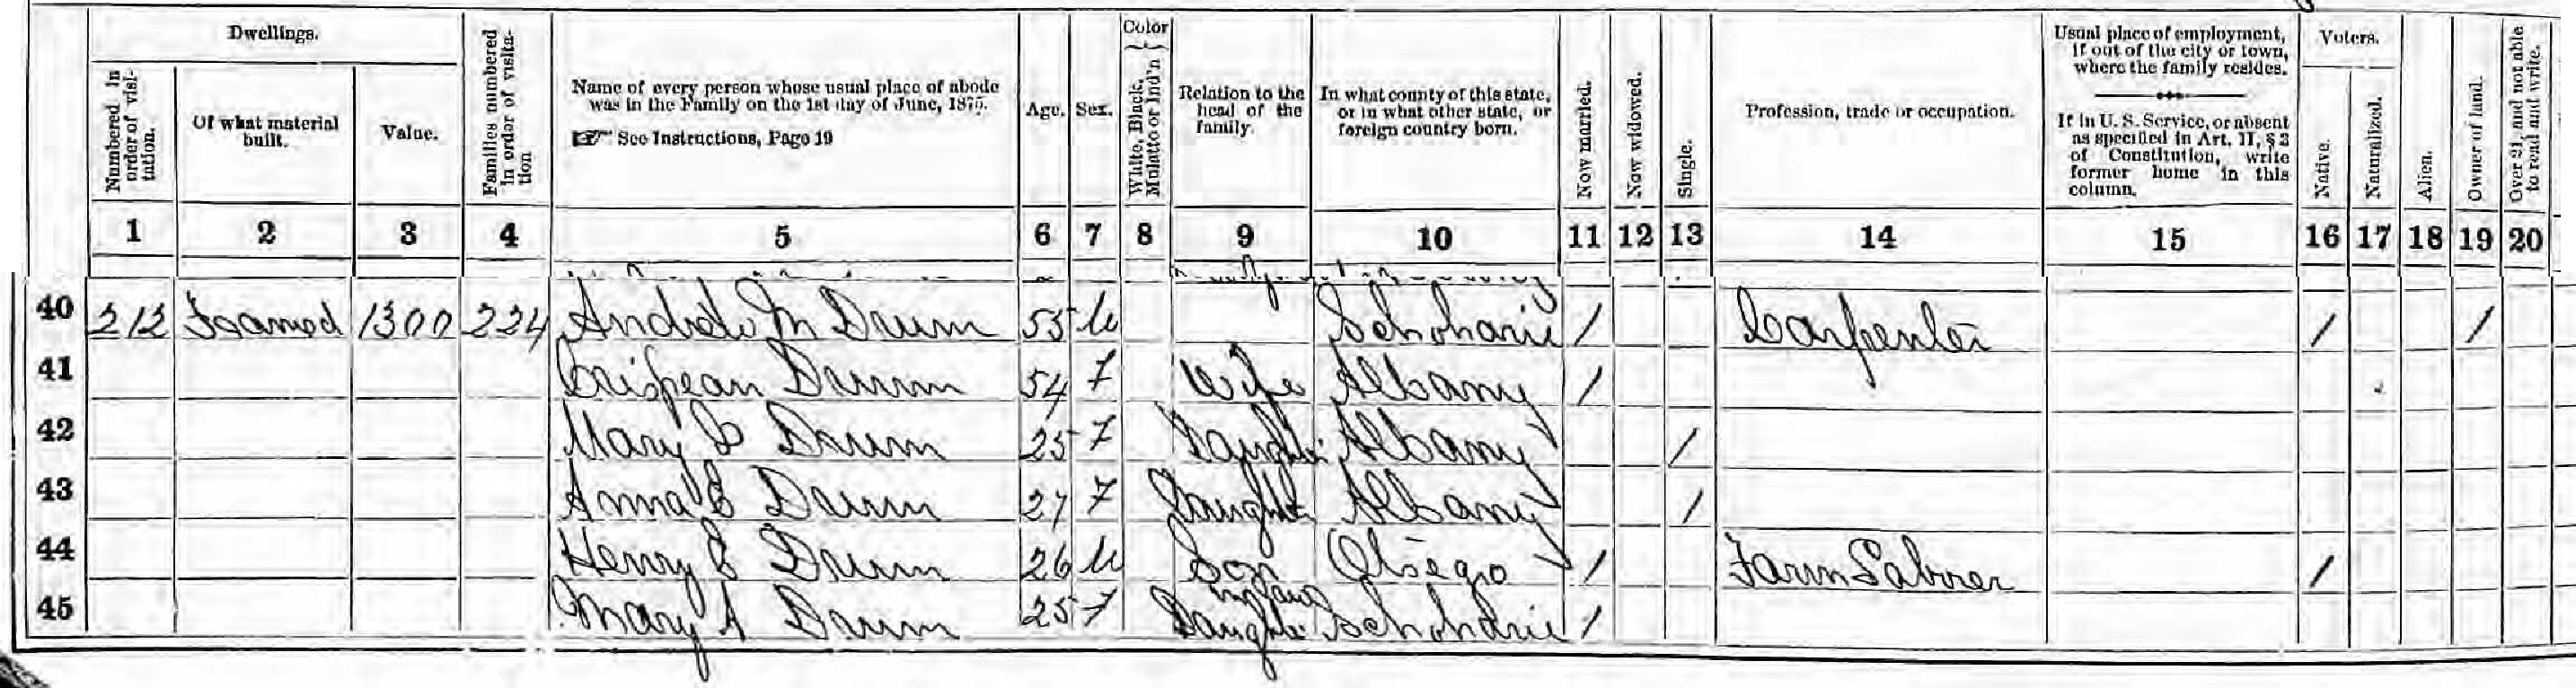 Dwellings.
Numbered in order of visitation.
Of what material built.
Value.
Families numbered in order of visitation
Name of every person whose usual place of abode was in the Family on the 1st day of June, 1875.
☞ See Instructions, Page 19
Age.
Sex.
Color
White, Black, Mulatto or Ind'n
Relation to the head of the family.
In what county of this state, or in what other state, or foreign country born.
Now married.
Now widowed.
Single.
Profession, trade or occupation.
Usual place of employment, if out of the city or town, where the family resides.
If in U. S. Service, or absent as specified in Art. II, § 3 of Constitution, write former home in this column.
Voters.
Native.
Naturalized.
Alien.
Owner of land.
Over 21, and not able to read and write.
1 2 3 4 5 6 7 8 9 10 11 12 13 14 15 16 17 18 19 20
40 212 Framed 1300 224 M Drum 55 M Schoharie / Carpenter / /
41 Drum 54 F Wife Albany /
42 Mary Drum 25 F Daughter Albany /
43 Anna E Drum 27 F Daughter Albany /
44 Henry E Drum 26 M Son Otsego / Farm Laborer /
45 Mary A Drum 25 F Daughter in law Schoharie /